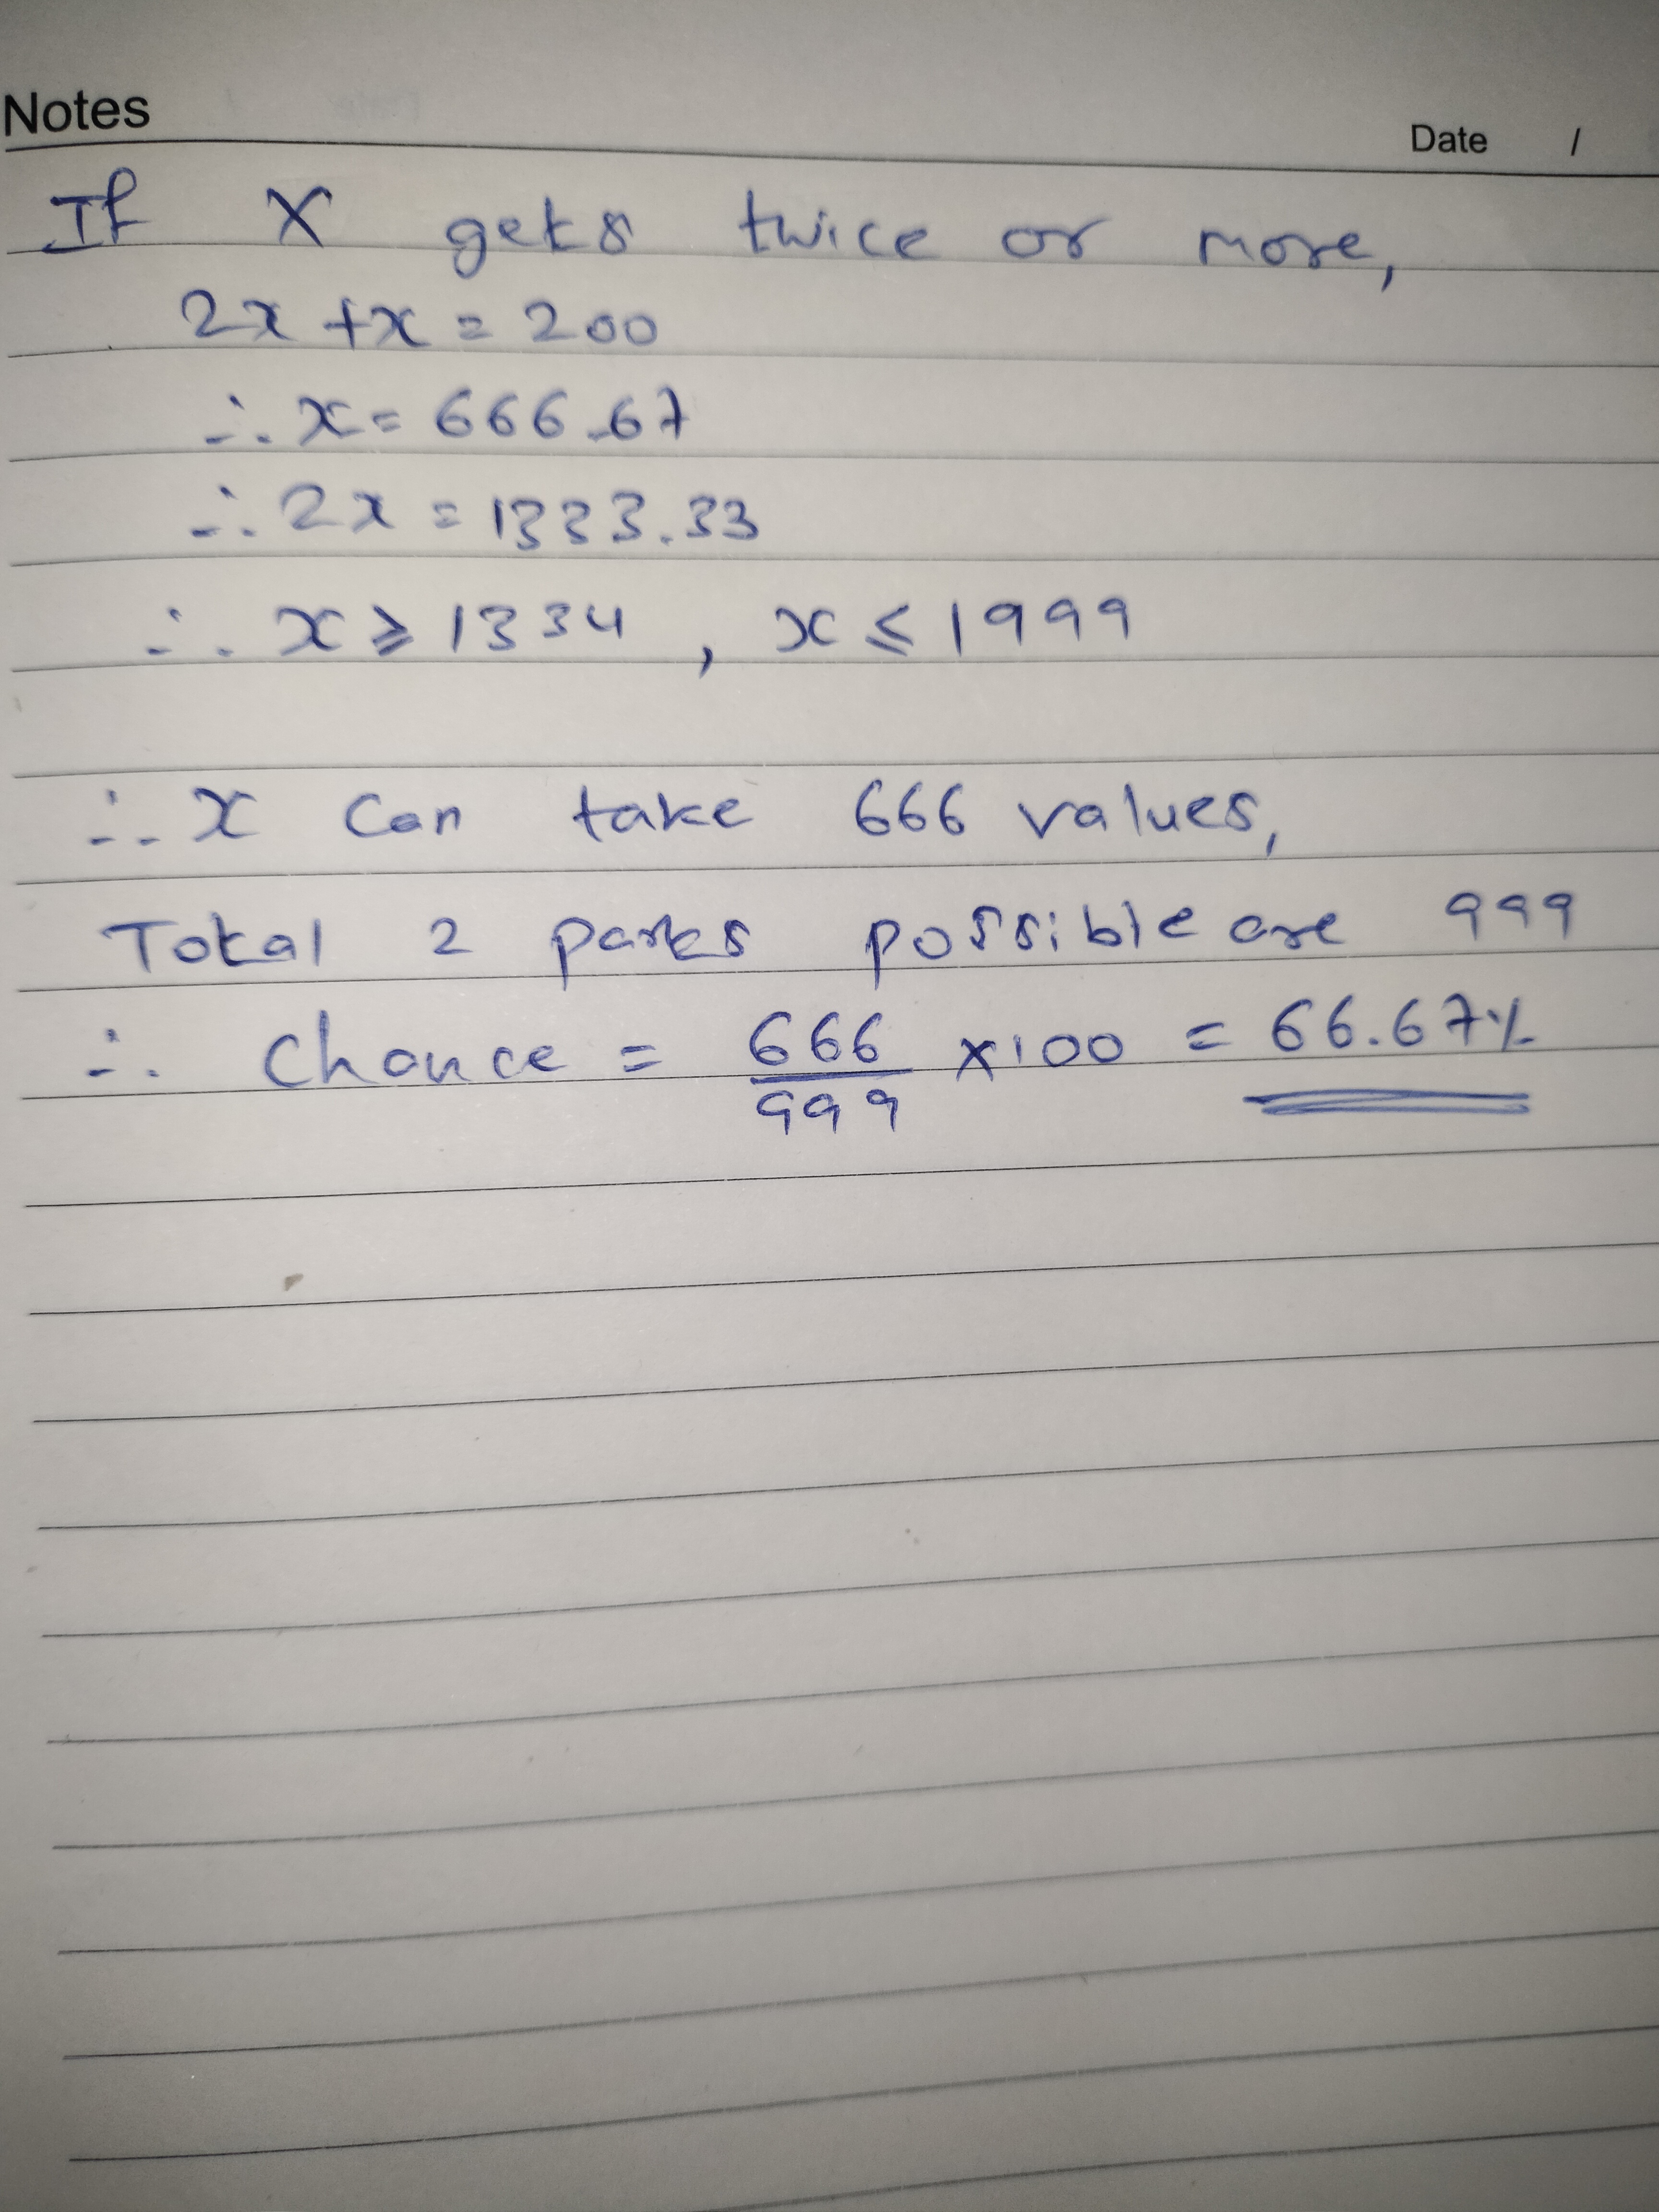 Notes
Date /
If X gets twice or more,
2x + x = 200
∴ x = 666.67
∴ 2x = 1333.33
∴ x ⩾ 1334 , x ⩽ 1999
∴ x can take 666 values,
Total 2 parts possible are 999
∴ Chance = 666/999 × 100 = 66.67%